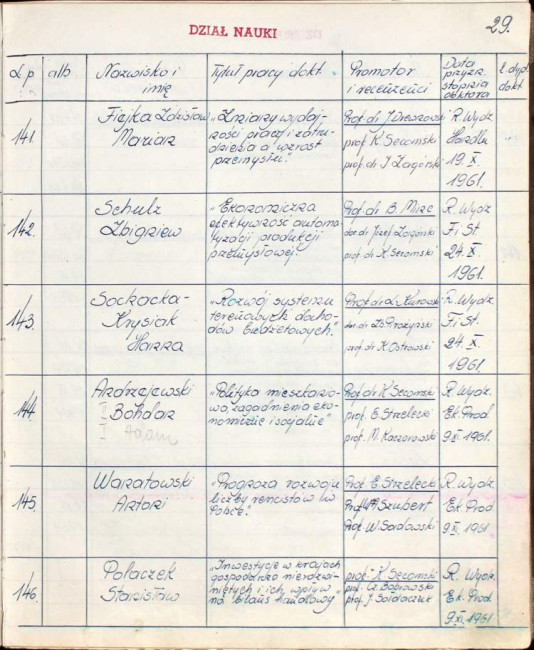 29.
DZIAŁ NAUKI
L.p alb. Nazwisko i imię Tytuł pracy dokt. Promotor i recenzenci Data przyzn. stopnia doktora L. dypl. dokt
141. Fiejka Zdzisław Marian
"Zmiany wydajności pracy i zatrudnienia a wzrost przemysłu."
Prof. dr J. Drewnowski
prof. K. Secomski
prof. dr J. Zagórski
R. Wydz. Handlu
19. X.
1961.
142. Schulz Zbigniew
"Ekonomiczna efektywność automatyzacji produkcji przemysłowej."
Prof. dr B. Minc
doc. dr Józef Zagórski
prof. dr K. Secomski
R. Wydz.
Fi St
24. X.
1961.
143. Sochacka-Krysiak Hanna
"Rozwój systemu terenowych dochodów budżetowych."
Prof. dr L. Kurowski
prof. dr K. Ostrowski
R. Wydz.
Fi St.
24. X.
1961.
144. Andrzejewski Bohdan
II
I Adam
"Polityka mieszkaniowa, zagadnienia ekonomiczne i socjalne"
Prof. dr K. Secomski
prof. E. Strzelecki
prof. M. Kaczorowski
R. Wydz.
Ek. Prod
9 XI. 1961.
145. Waratowski Antoni
"Prognoza rozwoju liczby rencistów w Polsce."
Prof. E. Strzelecki
Prof. W. Szubert
Prof. W. Sadowski
R. Wydz.
Ek. Prod
9 XI. 1961
146. Polaczek Stanisław
"Inwestycje w krajach gospodarczo nierozwiniętych i ich wpływ na bilans handlowy"
prof. K. Secomski
prof. Cz. Bobrowski
prof. J. Sołdaczuk
R. Wydz.
Ek. Prod
9 XI. 1961